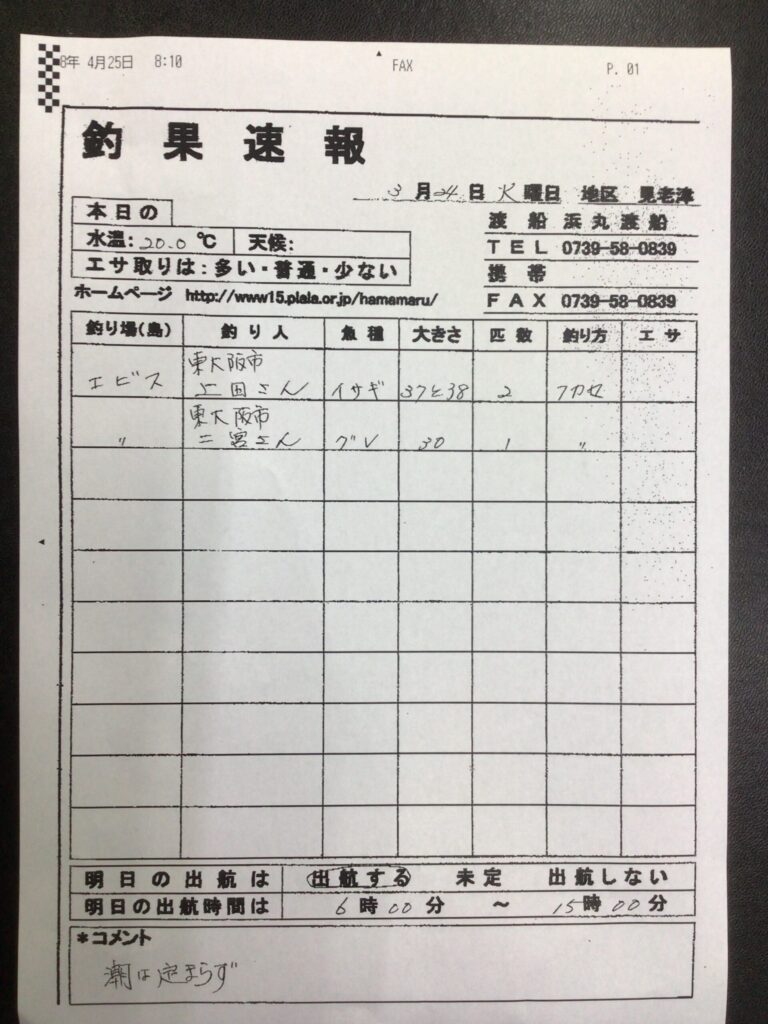 8年 4月25日 8:10 FAX P. 01
釣果速報
3月24日火曜日 地区 見老津
本日の
水温:20.0℃ 天候:
エサ取りは:多い・普通・少ない
ホームページ http://www15.plala.or.jp/hamamaru/
渡船 浜丸渡船
TEL 0739-58-0839
携帯
FAX 0739-58-0839
釣り場(島) 釣り人 魚種 大きさ 匹数 釣り方 エサ
東大阪市
エビス 上田さん イサギ 37と38 2 フカセ
東大阪市
〃 二宮さん グレ 30 1 〃
明日の出航は 出航する 未定 出航しない
明日の出航時間は 6時00分 ～ 15時00分
*コメント
潮は定まらず